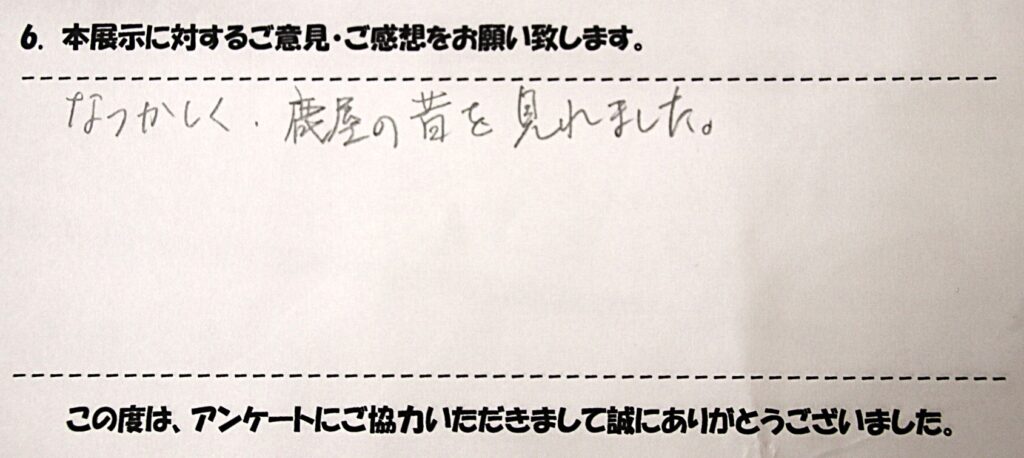 6. 本展示に対するご意見・ご感想をお願い致します。
なつかしく、鹿屋の昔を見れました。
この度は、アンケートにご協力いただきまして誠にありがとうございました。